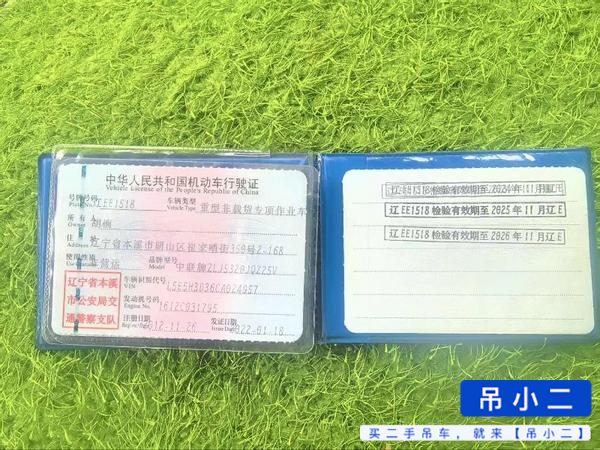 中华人民共和国机动车行驶证
Vehicle License of the People's Republic of China
号牌号码 辽EE1518 车辆类型 重型非载货专项作业车
Plate No. Vehicle Type
所有人 胡楠
Owner
住址 辽宁省本溪市明山区崔家哨街359号2-168
Address
使用性质 非营运 品牌型号 中联牌ZLJ5320JQZ25V
Use Character Model
车辆识别代号
VIN
发动机号码 1612C031795
Engine No.
注册日期 2012-11-26 发证日期 2022-01-18
Register Date Issue Date
辽宁省本溪
市公安局交
通警察支队
辽EE1518 检验有效期至2024年11月辽E
辽EE1518 检验有效期至2025年11月辽E
辽EE1518 检验有效期至2026年11月辽E
吊小二
买二手吊车，就来【吊小二】